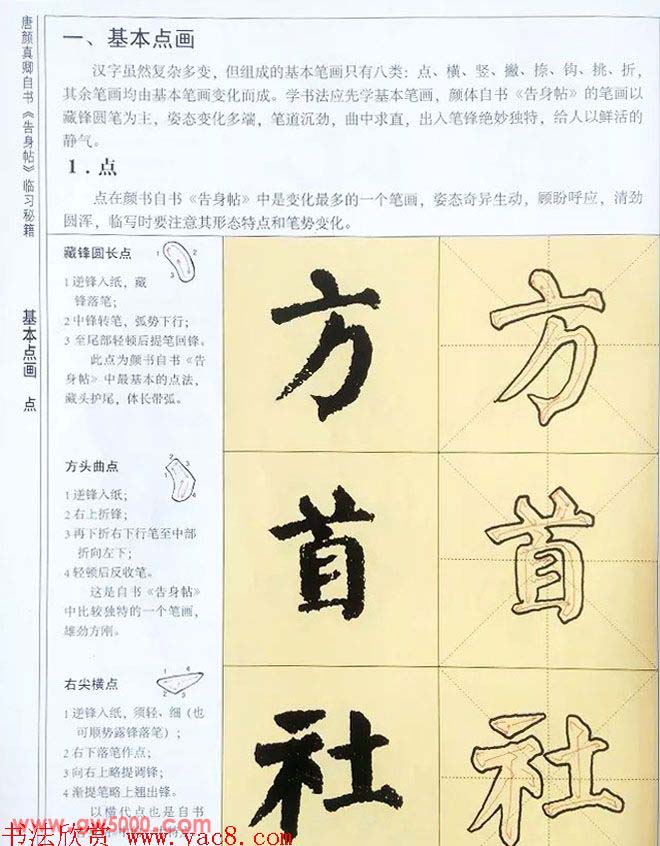 唐颜真卿自书《告身帖》临习秘籍
基本点画 点
一、基本点画
汉字虽然复杂多变，但组成的基本笔画只有八类：点、横、竖、撇、捺、钩、挑、折，
其余笔画均由基本笔画变化而成。学书法应先学基本笔画，颜体自书《告身帖》的笔画以
藏锋圆笔为主，姿态变化多端，笔道沉劲，曲中求直，出入笔锋绝妙独特，给人以鲜活的
静气。
1．点
点在颜书自书《告身帖》中是变化最多的一个笔画，姿态奇异生动，顾盼呼应，清劲
圆浑，临写时要注意其形态特点和笔势变化。
藏锋圆长点
1 2
3
1 逆锋入纸，藏
锋落笔；
2 中锋转笔，弧势下行；
3 至尾部轻顿后提笔回锋。
此点为颜书自书《告
身帖》中最基本的点法，
藏头护尾，体长带弧。
方 方
方头曲点
1 2
3
4
1 逆锋入纸；
2 右上折锋；
3 再下折右下行笔至中部
折向左下；
4 轻顿后反收笔。
这是自书《告身帖》
中比较独特的一个笔画，
雄劲方刚。
首 首
右尖横点
1 4
2 3
1 逆锋入纸，须轻、细（也
可顺势露锋落笔）；
2 右下落笔作点；
3 向右上略提调锋；
4 渐提笔略上翘出锋。
以横代点也是自书
社 社
www.gw5000.com
书法欣赏 www.yac8.com